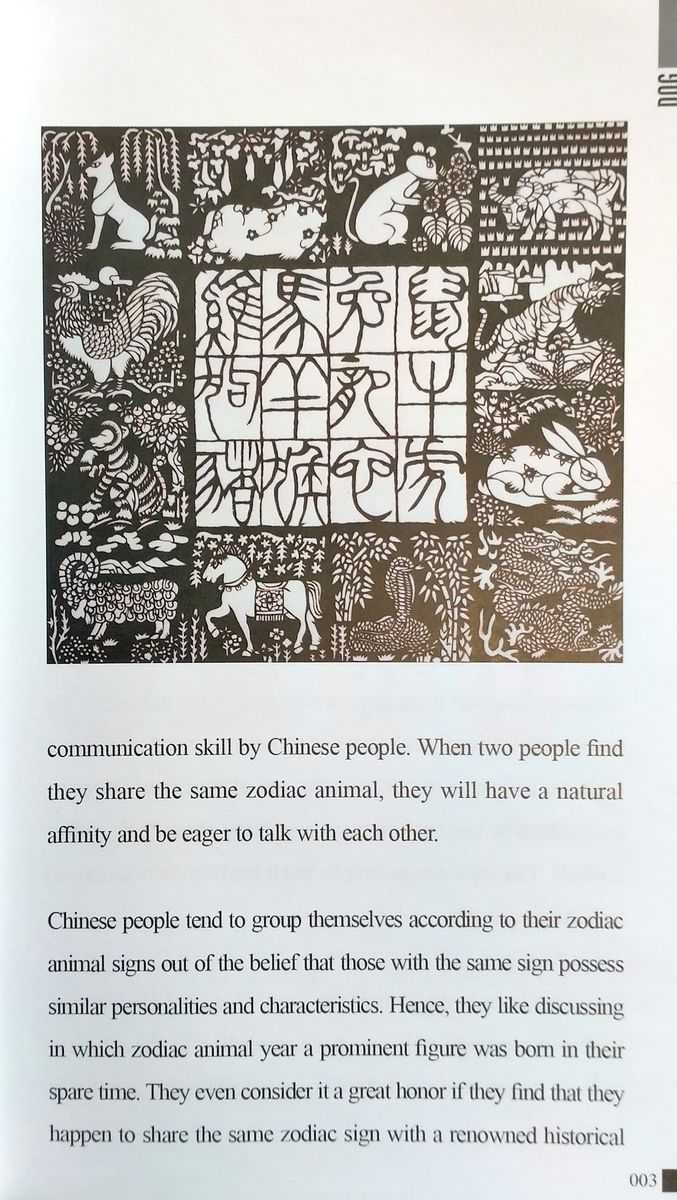 DOG
鼠牛虎
兔
馬羊猴
狗
communication skill by Chinese people. When two people find
they share the same zodiac animal, they will have a natural
affinity and be eager to talk with each other.
Chinese people tend to group themselves according to their zodiac
animal signs out of the belief that those with the same sign possess
similar personalities and characteristics. Hence, they like discussing
in which zodiac animal year a prominent figure was born in their
spare time. They even consider it a great honor if they find that they
happen to share the same zodiac sign with a renowned historical
003